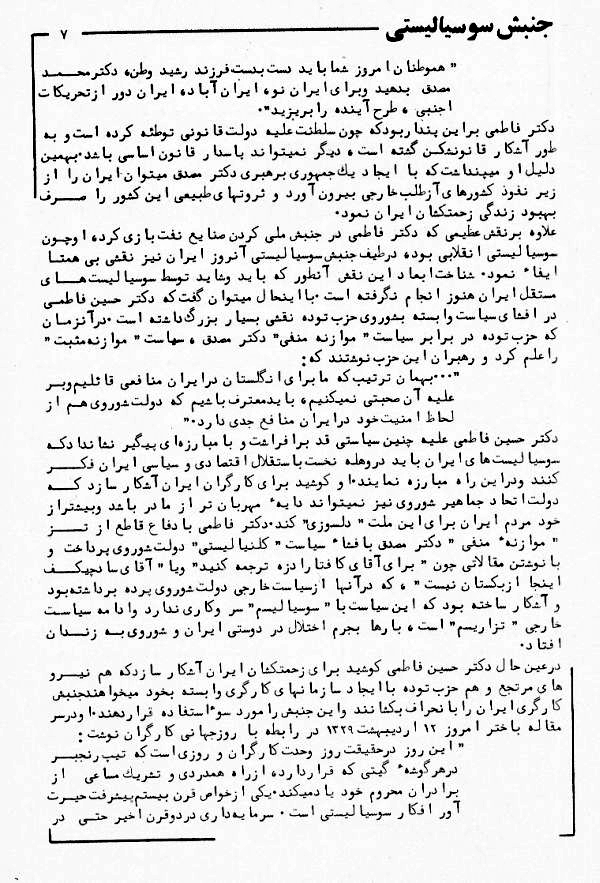 جنبش سوسیالیستی
۷
" هموطنان امروز شما باید دست بدست فرزند رشید وطن، دکتر محمد
مصدق بدهید و برای ایران نو، ایران آباد، ایران دور از تحریکات
اجنبی ، طرح آینده را بریزید"۰
دکتر فاطمی بر این پندار بود که چون سلطنت علیه دولت قانونی توطئه کرده است و به
طور آشکار قانونشکن گشته است ، دیگر نمیتواند پاسدار قانون اساسی باشد۰ بهمین
دلیل او میپنداشت که با ایجاد یك جمهوری برهبری دکتر مصدق میتوان ایران را از
زیر نفوذ کشورهای آزطلب خارجی بیرون آورد و ثروتهای طبیعی این کشور را صرف
بهبود زندگی زحمتکشان ایران نمود۰
علاوه بر نقش عظیمی که دکتر فاطمی در جنبش ملی کردن صنایع نفت بازی کرده، او چون
سوسیالیستی انقلابی بوده در طیف جنبش سوسیالیستی آنروز ایران نیز نقشی بی همتا
ایفاء نمود۰ شناخت ابعاد این نقش آنطور که باید وشاید توسط سوسیالیست های
مستقل ایران هنوز انجام نگرفته است ۰ با اینحال میتوان گفت که دکتر حسین فاطمی
در افشای سیاست وابسته بشوروی حزب توده نقشی بسیار بزرگ داشته است ۰ در آنزمان
که حزب توده در برابر سیاست " موازنه منفی" دکتر مصدق ، سیاست " موازنه مثبت "
را علم کرد و رهبران این حزب نوشتند که :
"۰۰۰بهمان ترتیب که ما برای انگلستان در ایران منافعی قائلیم و بر
علیه آن صحبتی نمیکنیم ، باید معترف باشیم که دولت شوروی هم از
لحاظ امنیت خود در ایران منافع جدی دارد۰"
دکتر حسین فاطمی علیه چنین سیاستی قد برافراشت و با مبارزه ای پیگیر نشان داد که
سوسیالیست های ایران باید در وهله نخست باستقلال اقتصادی و سیاسی ایران فکر
کنند و در این راه مبارزه نمایند۰ او کوشید برای کارگران ایران آشکار سازد که
دولت اتحاد جماهیر شوروی نیز نمیتواند دایهء مهربان تر از مادر باشد و بیشتر از
خود مردم ایران برای این ملت " دلسوزی " کند۰ دکتر فاطمی با دفاع قاطع از تز
" موازنهء منفی " دکتر مصدق بافشاء سیاست " کلنیالیستی" دولت شوروی پرداخت و
با نوشتن مقالاتی چون " برای آقای کافتارادزه ترجمه کنید" ویا " آقای سادچیکف
اینجا ازبکستان نیست " ، که در آنها از سیاست خارجی دولت شوروی پرده برداشته بود
و آشکار ساخته بود که این سیاست با " سوسیالیسم" سر و کاری ندارد و ادامه سیاست
خارجی " تزاریسم" است ، بارها بجرم اختلال در دوستی ایران و شوروی به زندان
افتاد۰
درعین حال دکتر حسین فاطمی کوشید برای زحمتکشان ایران آشکار سازد که هم نیرو
های مرتجع و هم حزب توده با ایجاد سازمانهای کارگری وابسته بخود میخواهند جنبش
کارگری ایران را بانحراف بکشانند واین جنبش را مورد سوء استفاده قرار دهند۰ او در سر
مقاله باختر امروز ۱۲ اردیبهشت ۱۳۲۹ در رابطه با روز جهانی کارگران نوشت :
" این روز در حقیقت روز وحدت کارگران و روزی است که تیپ رنجبر
در هر گوشهء گیتی که قرار دارد، از راه همدردی و تشریك مساعی از
برادران محروم خود یاد میکند۰ یکی از خواص قرن بیستم پیشرفت حیرت
آور افکار سوسیالیستی است ۰ سرمایه داری در دو قرن اخیر حتی در